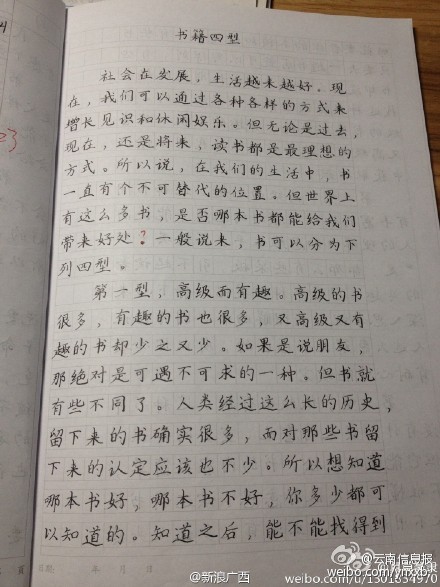 书籍四型
社会在发展，生活越来越好。现
在，我们可以通过各种各样的方式来
增长见识和休闲娱乐。但无论是过去，
现在，还是将来，读书都是最理想的
方式。所以说，在我们的生活中，书
一直有个不可替代的位置。但世界上
有这么多书，是否哪本书都能给我们
带来好处？一般说来，书可以分为下
列四型。
第一型，高级而有趣。高级的书
很多，有趣的书也很多，又高级又有
趣的书却少之又少。如果是说朋友，
那绝对是可遇不可求的一种。但书就
有些不同了。人类经过这么长的历史，
留下来的书确实很多，而对那些书留
下来的认定应该也不少。所以想知道
哪本书好，哪本书不好，你多少都可
以知道的。知道之后，能不能找得到
年 月 日
@云南信息报
@新浪广西
weibo.com/ynxxb
weibo.com/u/1301654970